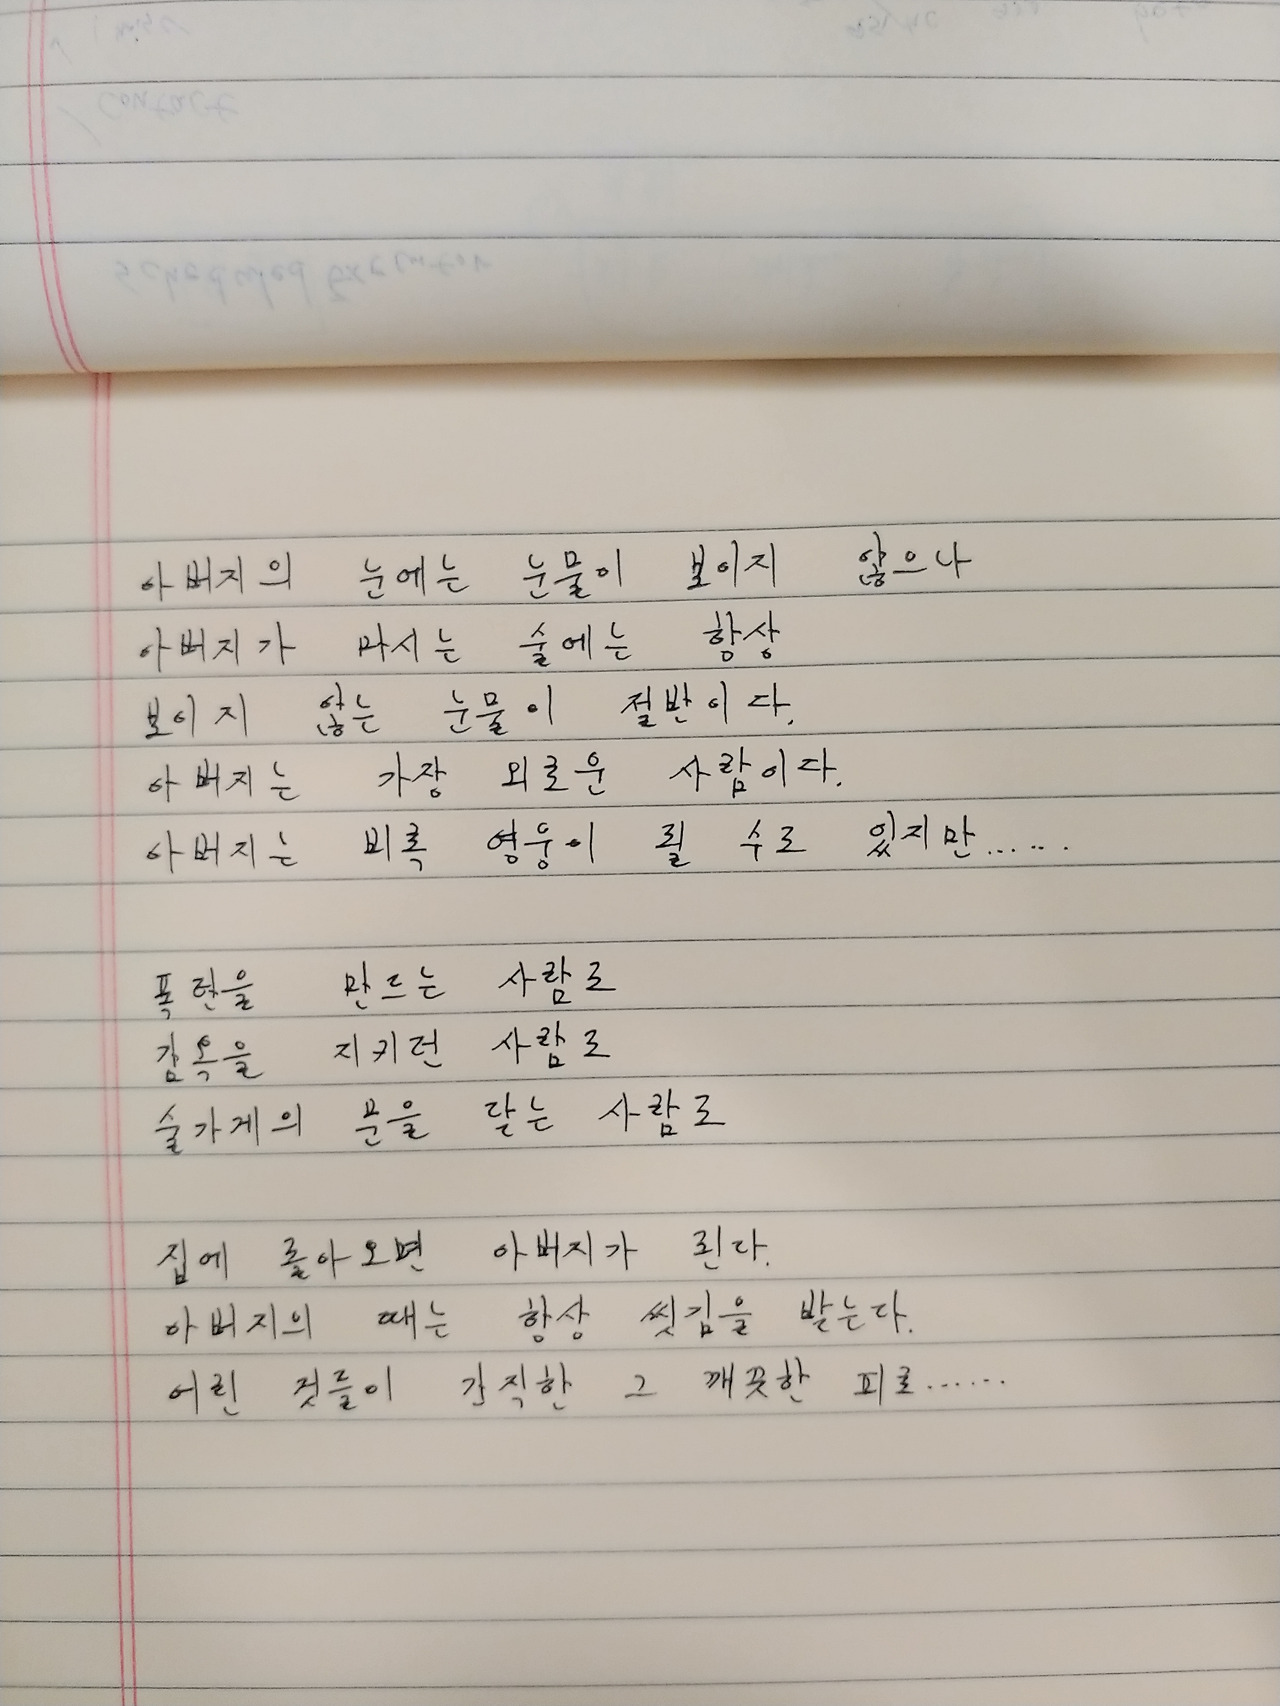 contact
scheduled Executor
아버지의 눈에는 눈물이 보이지 않으나
아버지가 마시는 술에는 항상
보이지 않는 눈물이 절반이다.
아버지는 가장 외로운 사람이다.
아버지는 비록 영웅이 될 수도 있지만......
폭탄을 만드는 사람도
감옥을 지키던 사람도
술가게의 문을 닫는 사람도
집에 돌아오면 아버지가 된다.
아버지의 때는 항상 씻김을 받는다.
어린 것들이 간직한 그 깨끗한 피로......